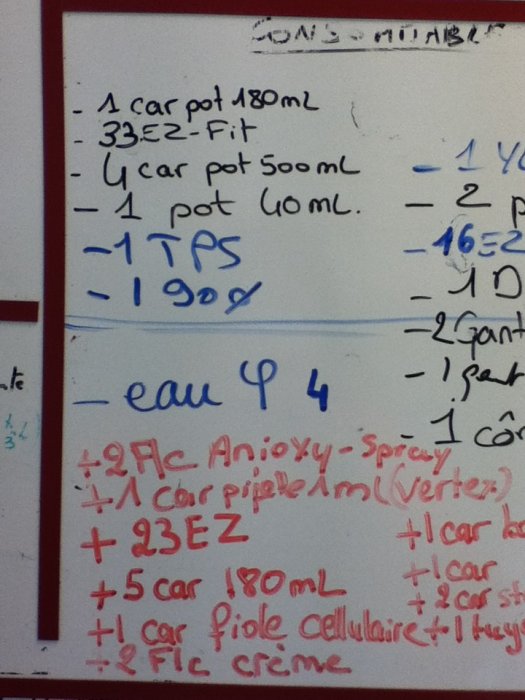 CONSOMMABLE
- 1 car pot 180mL
- 33EZ-Fit
- 4 car pot 500mL
- 1 pot 40mL.
- 1 TPS
- 1 900
- eau φ 4
- 1
- 2 p
- 16EZ
- 1 D
- 2 Gant
- 1
- 1 côn
+2 Flc Anioxy-Spray
+1 car pipette 1ml (vertex)
+ 23EZ
+5 car 180mL
+1 car fiole cellulaire
+2 Flc crème
+1 car
+1 car
+2 car
+1 tuy